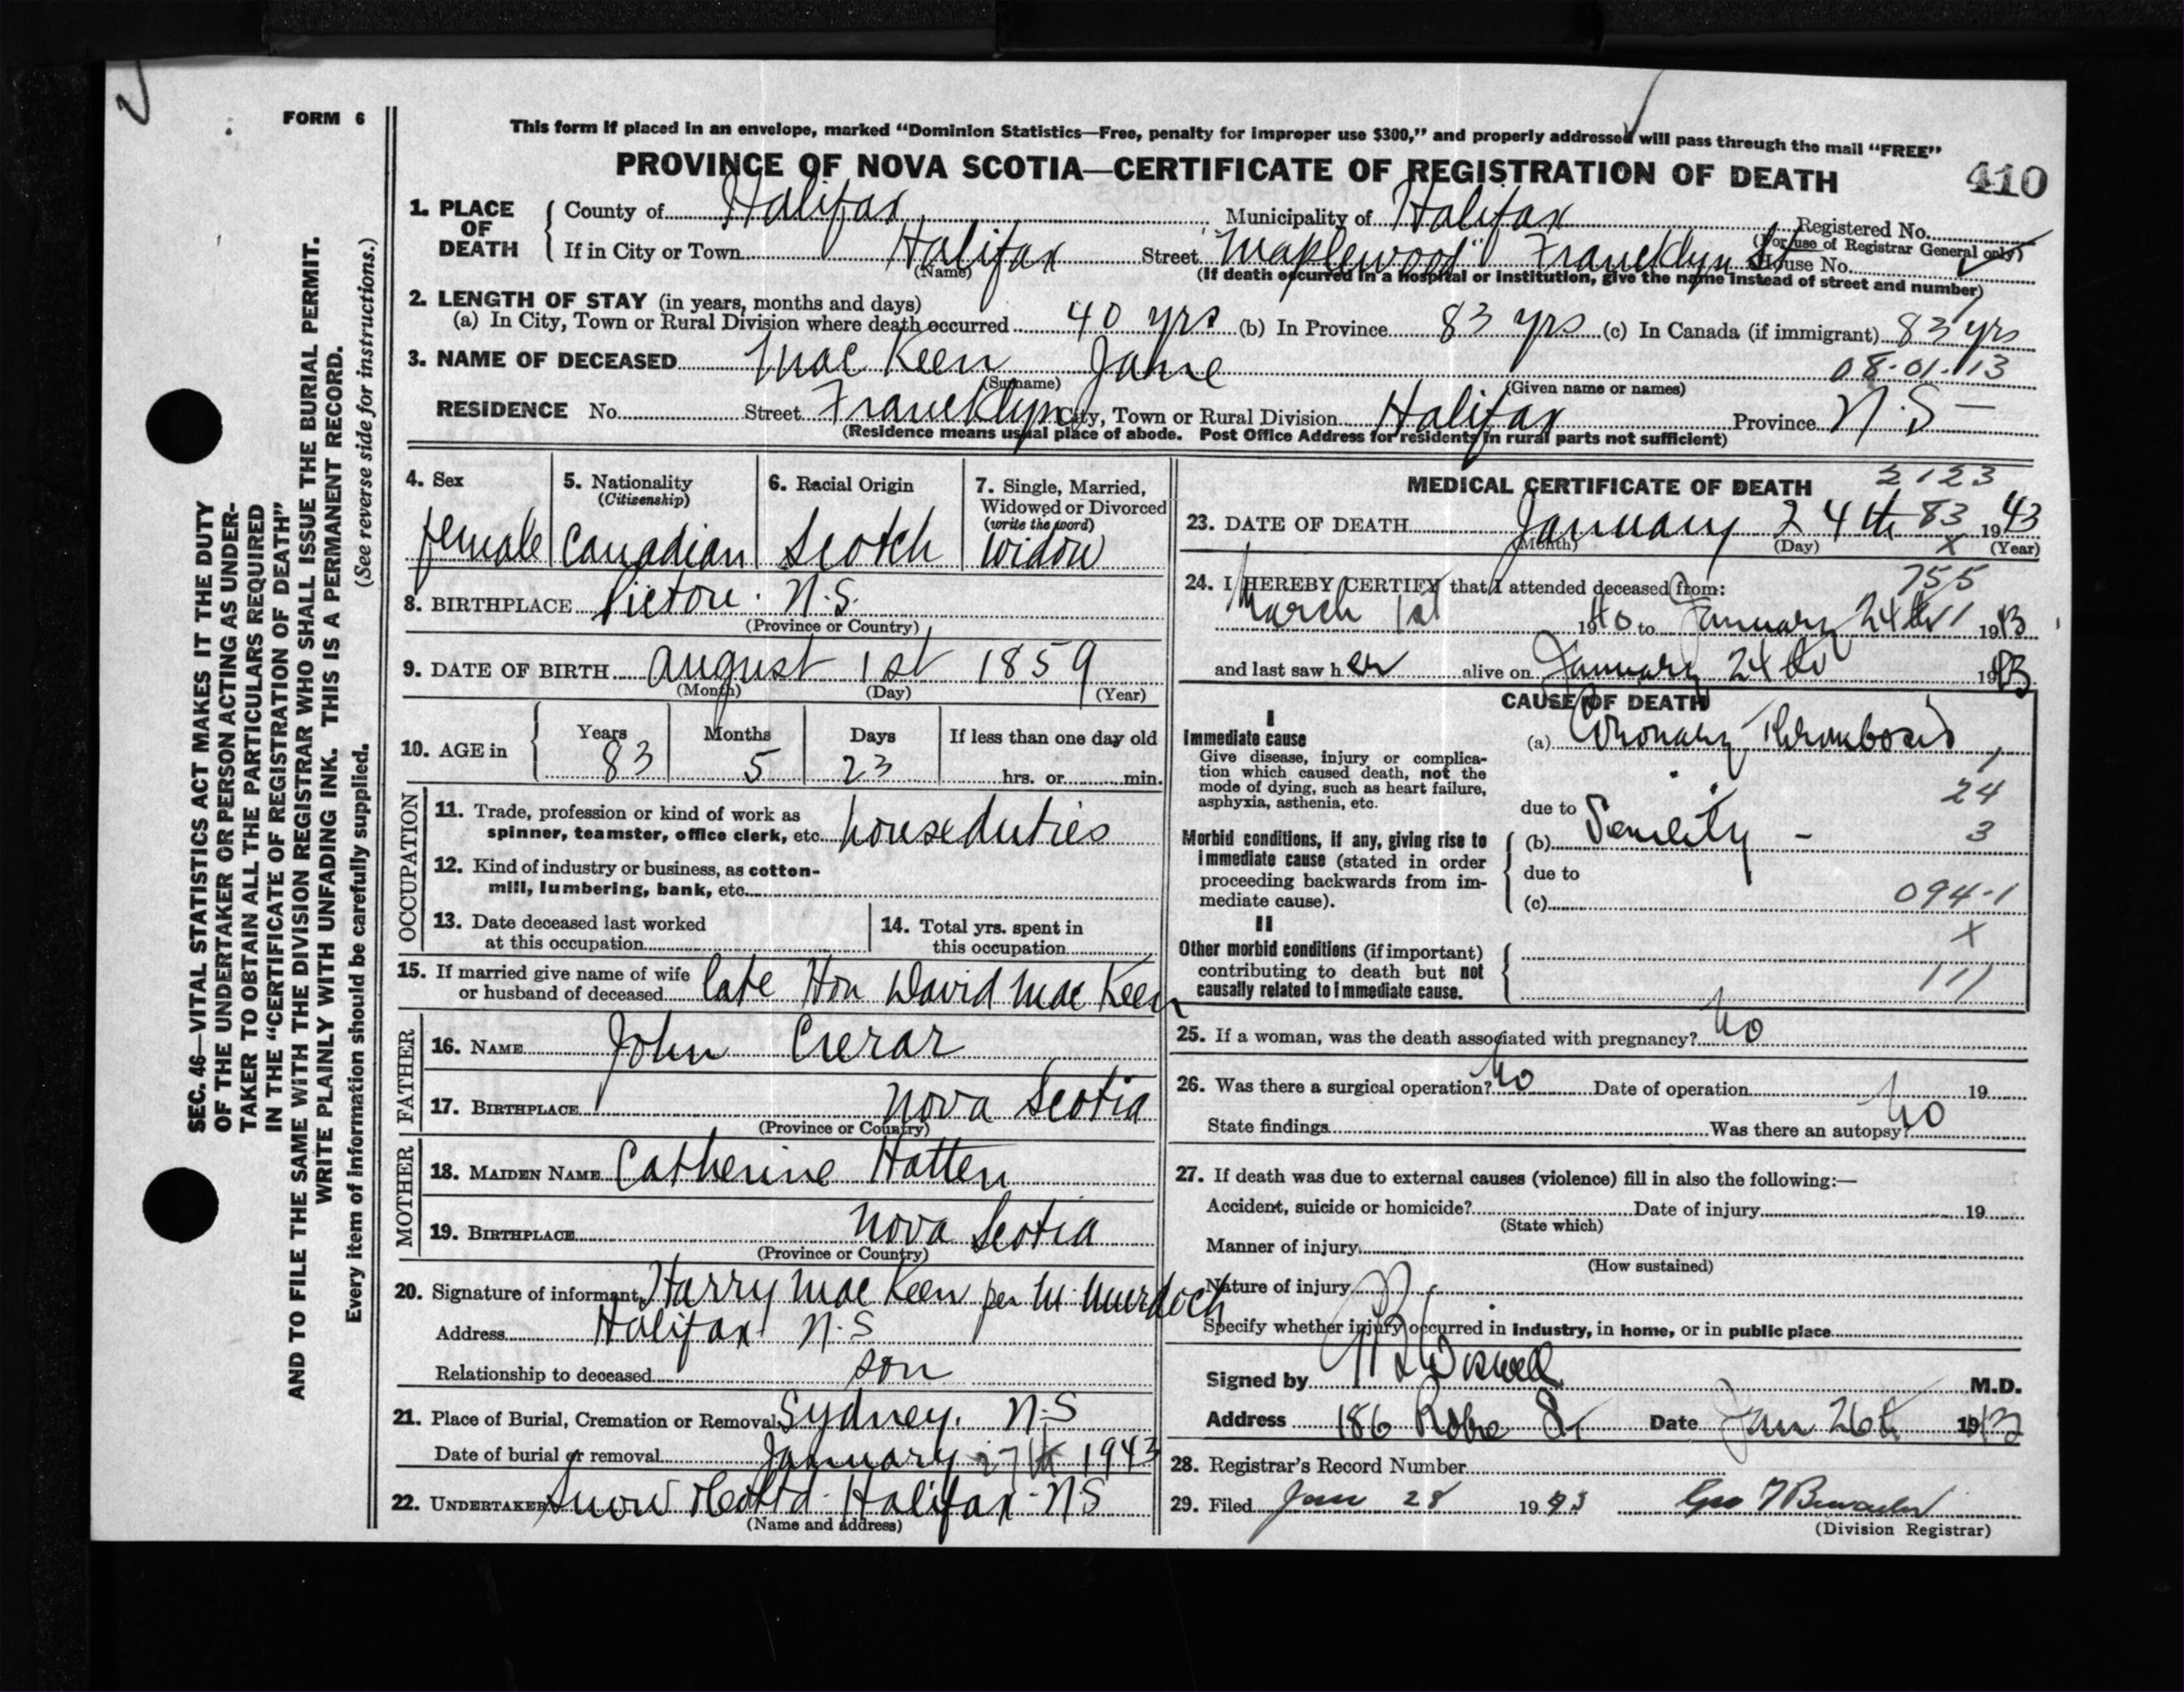 FORM 6
This form if placed in an envelope, marked "Dominion Statistics—Free, penalty for improper use $300," and properly addressed will pass through the mail "FREE"
PROVINCE OF NOVA SCOTIA—CERTIFICATE OF REGISTRATION OF DEATH
410
1. PLACE OF DEATH
County of Halifax, Municipality of Halifax Registered No.
(For use of Registrar General only)
If in City or Town Halifax Street "Maplewood" Francklyn St House No.
(Name)
(If death occurred in a hospital or institution, give the name instead of street and number)
2. LENGTH OF STAY (in years, months and days)
(a) In City, Town or Rural Division where death occurred 40 yrs (b) In Province 83 yrs (c) In Canada (if immigrant) 83 yrs
3. NAME OF DECEASED MacKeen Jane 08-01-13
(Surname) (Given name or names)
RESIDENCE No. Street Francklyn City, Town or Rural Division Halifax Province N.S—
(Residence means usual place of abode. Post Office Address for residents in rural parts not sufficient)
4. Sex
female
5. Nationality
(Citizenship)
Canadian
6. Racial Origin
Scotch
7. Single, Married, Widowed or Divorced
(write the word)
Widow
8. BIRTHPLACE Pictou. N.S.
(Province or Country)
9. DATE OF BIRTH August 1st 1859
(Month) (Day) (Year)
10. AGE in
Years Months Days If less than one day old
83 5 23 hrs. or min.
OCCUPATION
11. Trade, profession or kind of work as
spinner, teamster, office clerk, etc. houseduties
12. Kind of industry or business, as cotton-
mill, lumbering, bank, etc.
13. Date deceased last worked
at this occupation
14. Total yrs. spent in
this occupation
15. If married give name of wife
or husband of deceased late Hon David MacKeen
FATHER
16. NAME John Crerar
17. BIRTHPLACE Nova Scotia
(Province or Country)
MOTHER
18. MAIDEN NAME Catherine Hatten
19. BIRTHPLACE Nova Scotia
(Province or Country)
20. Signature of informant Harry MacKeen per M. Murdoch
Address Halifax N.S
Relationship to deceased son
21. Place of Burial, Cremation or Removal Sydney. N.S
Date of burial or removal January 27th 1943
22. UNDERTAKER Snow Halifax - N.S
(Name and address)
MEDICAL CERTIFICATE OF DEATH
2123
23. DATE OF DEATH January 24th 83 1943
(Month) (Day) x (Year)
24. I HEREBY CERTIFY that I attended deceased from:
755
March 1st 1940 to January 24th 1943
and last saw her alive on January 24th 1943
CAUSE OF DEATH
I
Immediate cause
Give disease, injury or complica-
tion which caused death, not the
mode of dying, such as heart failure,
asphyxia, asthenia, etc.
(a) Coronary Thrombosis
24
due to
Morbid conditions, if any, giving rise to
immediate cause (stated in order
proceeding backwards from im-
mediate cause).
(b) Senility - 3
due to
(c) 094-1
X
II
Other morbid conditions (if important)
contributing to death but not
causally related to immediate cause.
111
25. If a woman, was the death associated with pregnancy? No
26. Was there a surgical operation? No Date of operation 19
State findings Was there an autopsy? No
27. If death was due to external causes (violence) fill in also the following:—
Accident, suicide or homicide? Date of injury 19
(State which)
Manner of injury
(How sustained)
Nature of injury
Specify whether injury occurred in industry, in home, or in public place
Signed by M.D.
Address 186 Robie St Date Jan 26th 1943
28. Registrar's Record Number
29. Filed Jan 28 1943 Geo
(Division Registrar)
SEC. 46—VITAL STATISTICS ACT MAKES IT THE DUTY
OF THE UNDERTAKER OR PERSON ACTING AS UNDER-
TAKER TO OBTAIN ALL THE PARTICULARS REQUIRED
IN THE "CERTIFICATE OF REGISTRATION OF DEATH"
AND TO FILE THE SAME WITH THE DIVISION REGISTRAR WHO SHALL ISSUE THE BURIAL PERMIT.
WRITE PLAINLY WITH UNFADING INK. THIS IS A PERMANENT RECORD.
Every item of information should be carefully supplied. (See reverse side for instructions.)